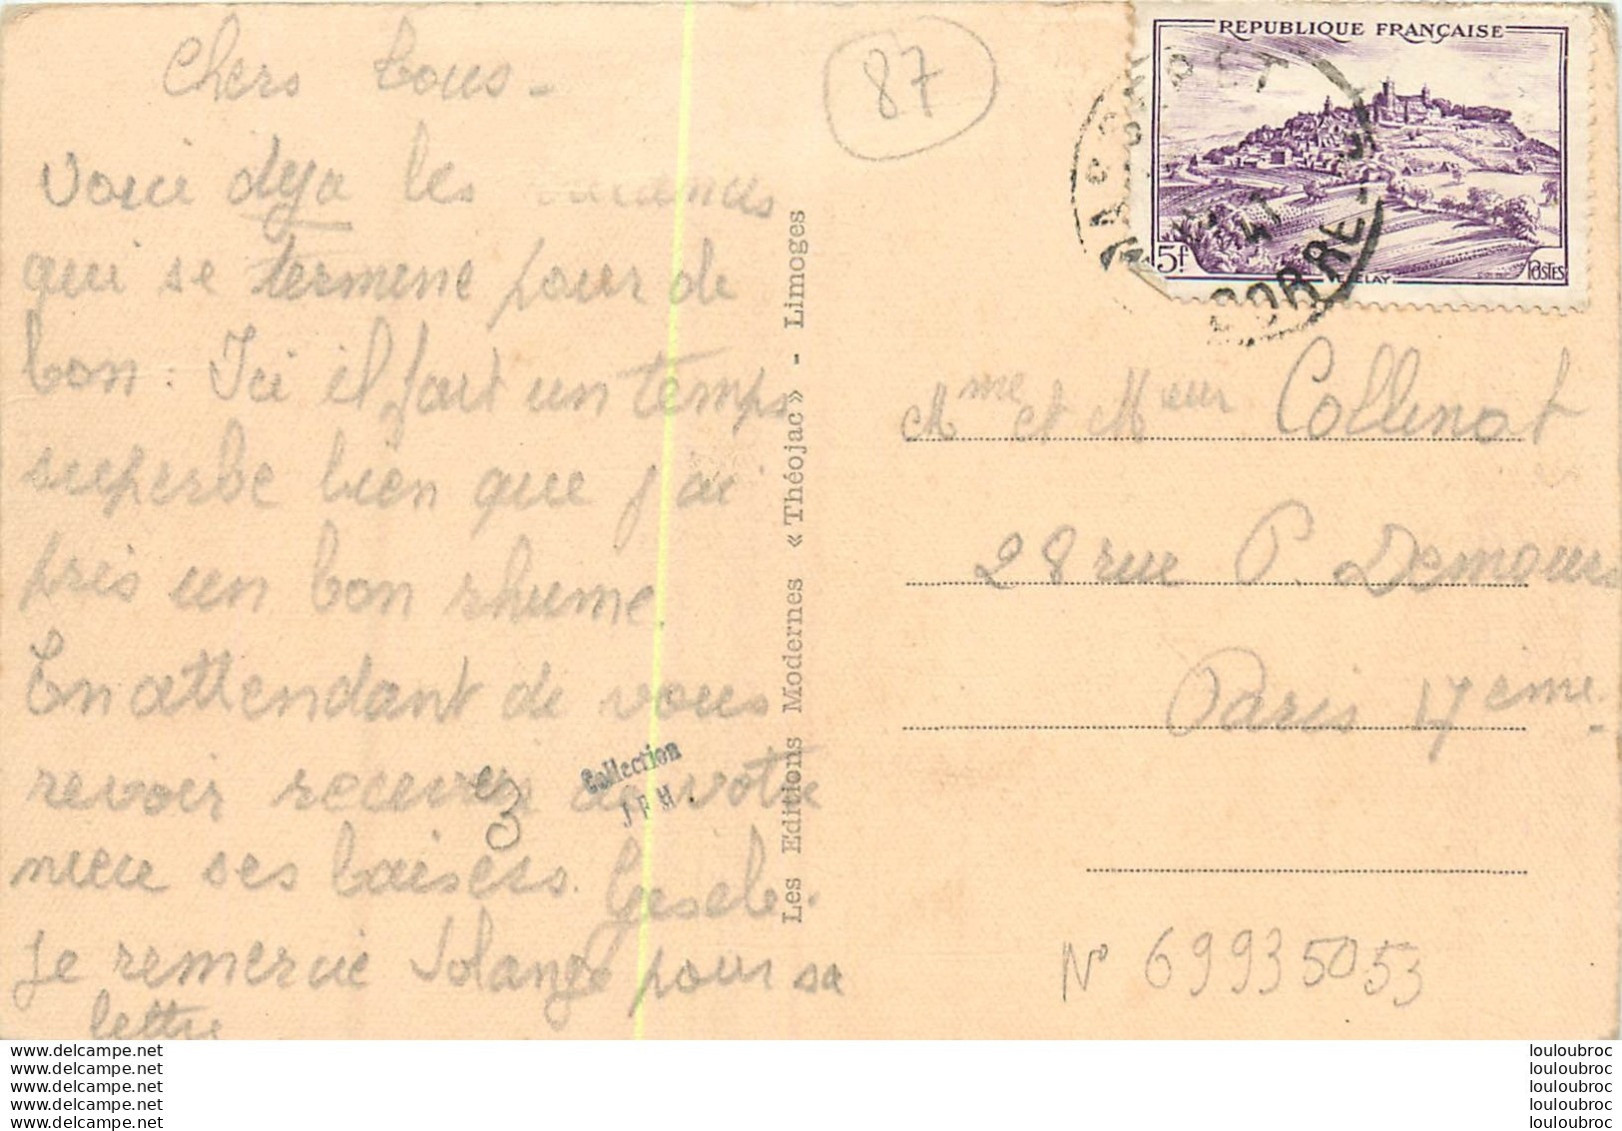 Chers tous -
Voici déja les vacances
qui se termine pour de
bon : Ici il fait un temps
superbe bien que j'ai
pris un bon rhume.
En attendant de vous
revoir recevez de votre
nieu ses baisers. Gisele.
Je remercie Solange pour sa
lettre
87
3
Collection
J P M.
Les Editions Modernes « Théojac » - Limoges
REPUBLIQUE FRANÇAISE
5f
POSTES
CORRE
Mme et Meur Collenot
28 rue P. Demours
Paris 17eme.
N° 69935053
www.delcampe.net
www.delcampe.net
www.delcampe.net
www.delcampe.net
www.delcampe.net
louloubroc
louloubroc
louloubroc
louloubroc
louloubroc